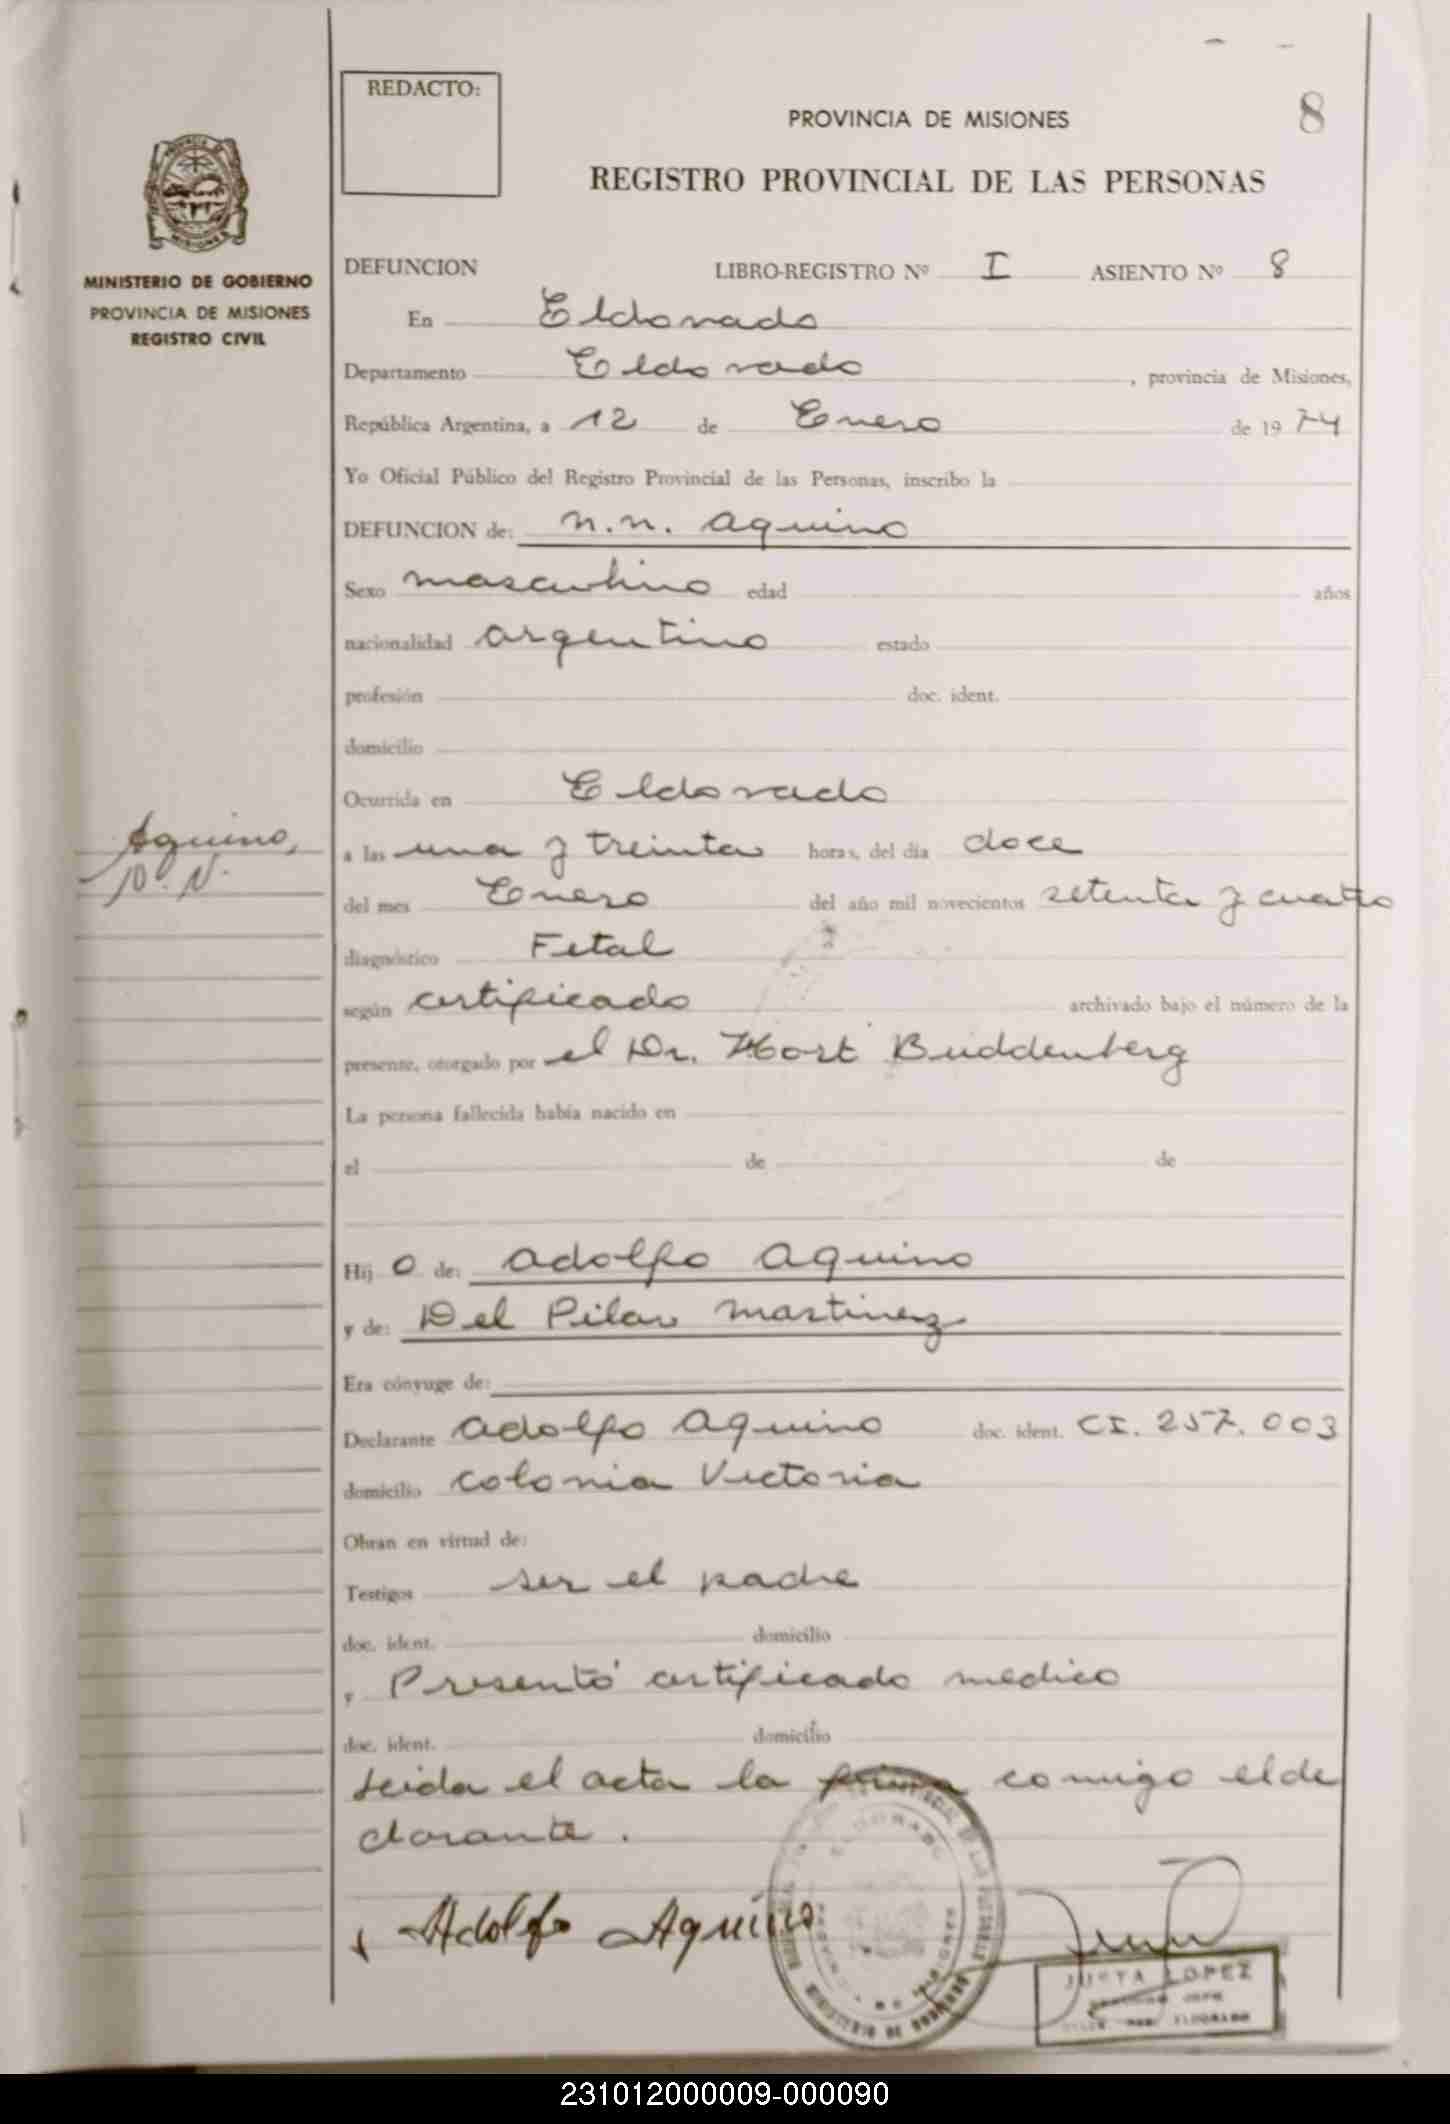 REDACTO:
PROVINCIA DE MISIONES
8
REGISTRO PROVINCIAL DE LAS PERSONAS
MINISTERIO DE GOBIERNO
PROVINCIA DE MISIONES
REGISTRO CIVIL
DEFUNCION LIBRO-REGISTRO Nº I ASIENTO Nº 8
En Eldorado
Departamento Eldorado, provincia de Misiones,
República Argentina, a 12 de Enero de 1974
Yo Oficial Público del Registro Provincial de las Personas, inscribo la
DEFUNCION de: N.N. Aquino
Sexo masculino edad años
nacionalidad argentino estado
profesión doc. ident.
domicilio
Ocurrida en Eldorado
Aquino,
N. N.
a las una y treinta horas, del día doce
del mes Enero del año mil novecientos setenta y cuatro
diagnóstico Fetal
según certificado archivado bajo el número de la
presente, otorgado por el Dr. Hort Buddenberg
La persona fallecida había nacido en
el de de
Hij o de: Adolfo Aquino
y de: Del Pilar Martinez
Era cónyuge de:
Declarante Adolfo Aquino doc. ident. CI. 257.003
domicilio Colonia Victoria
Obran en virtud de:
Testigos ser el padre
doc. ident. domicilio
y Presentó certificado medico
doc. ident. domicilio
Leida el acta la firma comigo el de
clarante.
Adolfo Aquino
ELDORADO
JUSTA LOPEZ
ELDORADO
231012000009-000090